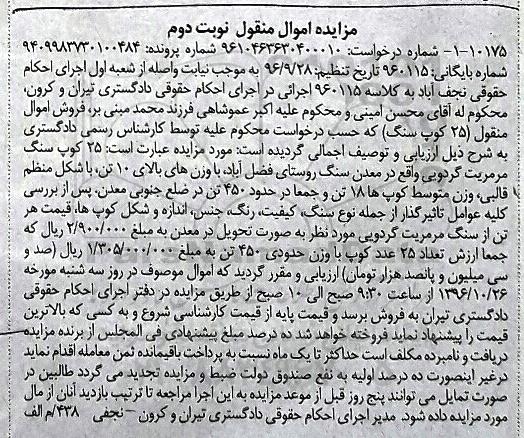 مزایده اموال منقول نوبت دوم
۱۰۱۷۵-۱- شماره درخواست: ۹۶۱۰۴۶۳۶۳۰۴۰۰۰۱۰ شماره پرونده: ۹۴۰۹۹۸۳۷۳۰۱۰۰۴۸۴
شماره بایگانی: ۹۶۰۱۱۵ تاریخ تنظیم: ۹۶/۹/۲۸ به موجب نیابت واصله از شعبه اول اجرای احکام
حقوقی نجف آباد به کلاسه ۹۶۰۱۱۵ اجرائی در اجرای احکام حقوقی دادگستری تیران و کرون،
محکوم له آقای محسن امینی و محکوم علیه اکبر عموشاهی فرزند محمد مبنی بر، فروش اموال
منقول (۲۵ کوپ سنگ) که حسب درخواست محکوم علیه توسط کارشناس رسمی دادگستری
به شرح ذیل ارزیابی و توصیف اجمالی گردیده است: مورد مزایده عبارت است: ۲۵ کوپ سنگ
مرمریت گردویی واقع در معدن سنگ روستای فضل آباد، با وزن های بالای ۱۰ تن، با شکل منظم
قالبی، وزن متوسط کوپ ها ۱۸ تن و جمعا در حدود ۴۵۰ تن در ضلع جنوبی معدن. پس از بررسی
کلیه عوامل تاثیرگذار از جمله نوع سنگ، کیفیت، رنگ، جنس، اندازه و شکل کوپ ها، قیمت هر
تن از سنگ مرمریت گردویی مورد نظر به صورت تحویل در معدن به مبلغ ۲/۹۰۰/۰۰۰ ریال که
جمعا ارزش تعداد ۲۵ عدد کوپ با وزن حدودی ۴۵۰ تن به مبلغ ۱/۳۰۵/۰۰۰/۰۰۰ ریال (صد و
سی میلیون و پانصد هزار تومان) ارزیابی و مقرر گردید که اموال موصوف در روز سه شنبه مورخه
۱۳۹۶/۱۰/۲۶ از ساعت ۹:۳۰ صبح الی ۱۰ صبح از طریق مزایده در دفتر اجرای احکام حقوقی
دادگستری تیران به فروش برسد و قیمت پایه از قیمت کارشناسی شروع و به کسی که بالاترین
قیمت را پیشنهاد نماید فروخته خواهد شد ده درصد مبلغ پیشنهادی فی المجلس از برنده مزایده
دریافت و نامبرده مکلف است حداکثر تا یک ماه نسبت به پرداخت باقیمانده ثمن معامله اقدام نماید
در غیر اینصورت ده درصد اولیه به نفع صندوق دولت ضبط و مزایده تجدید می گردد طالبین در
صورت تمایل می توانند پنج روز قبل از موعد مزایده به این اجرا مراجعه تا ترتیب بازدید آنان از مال
مورد مزایده داده شود. مدیر اجرای احکام حقوقی دادگستری تیران و کرون – نجفی ۴۳۸/م الف